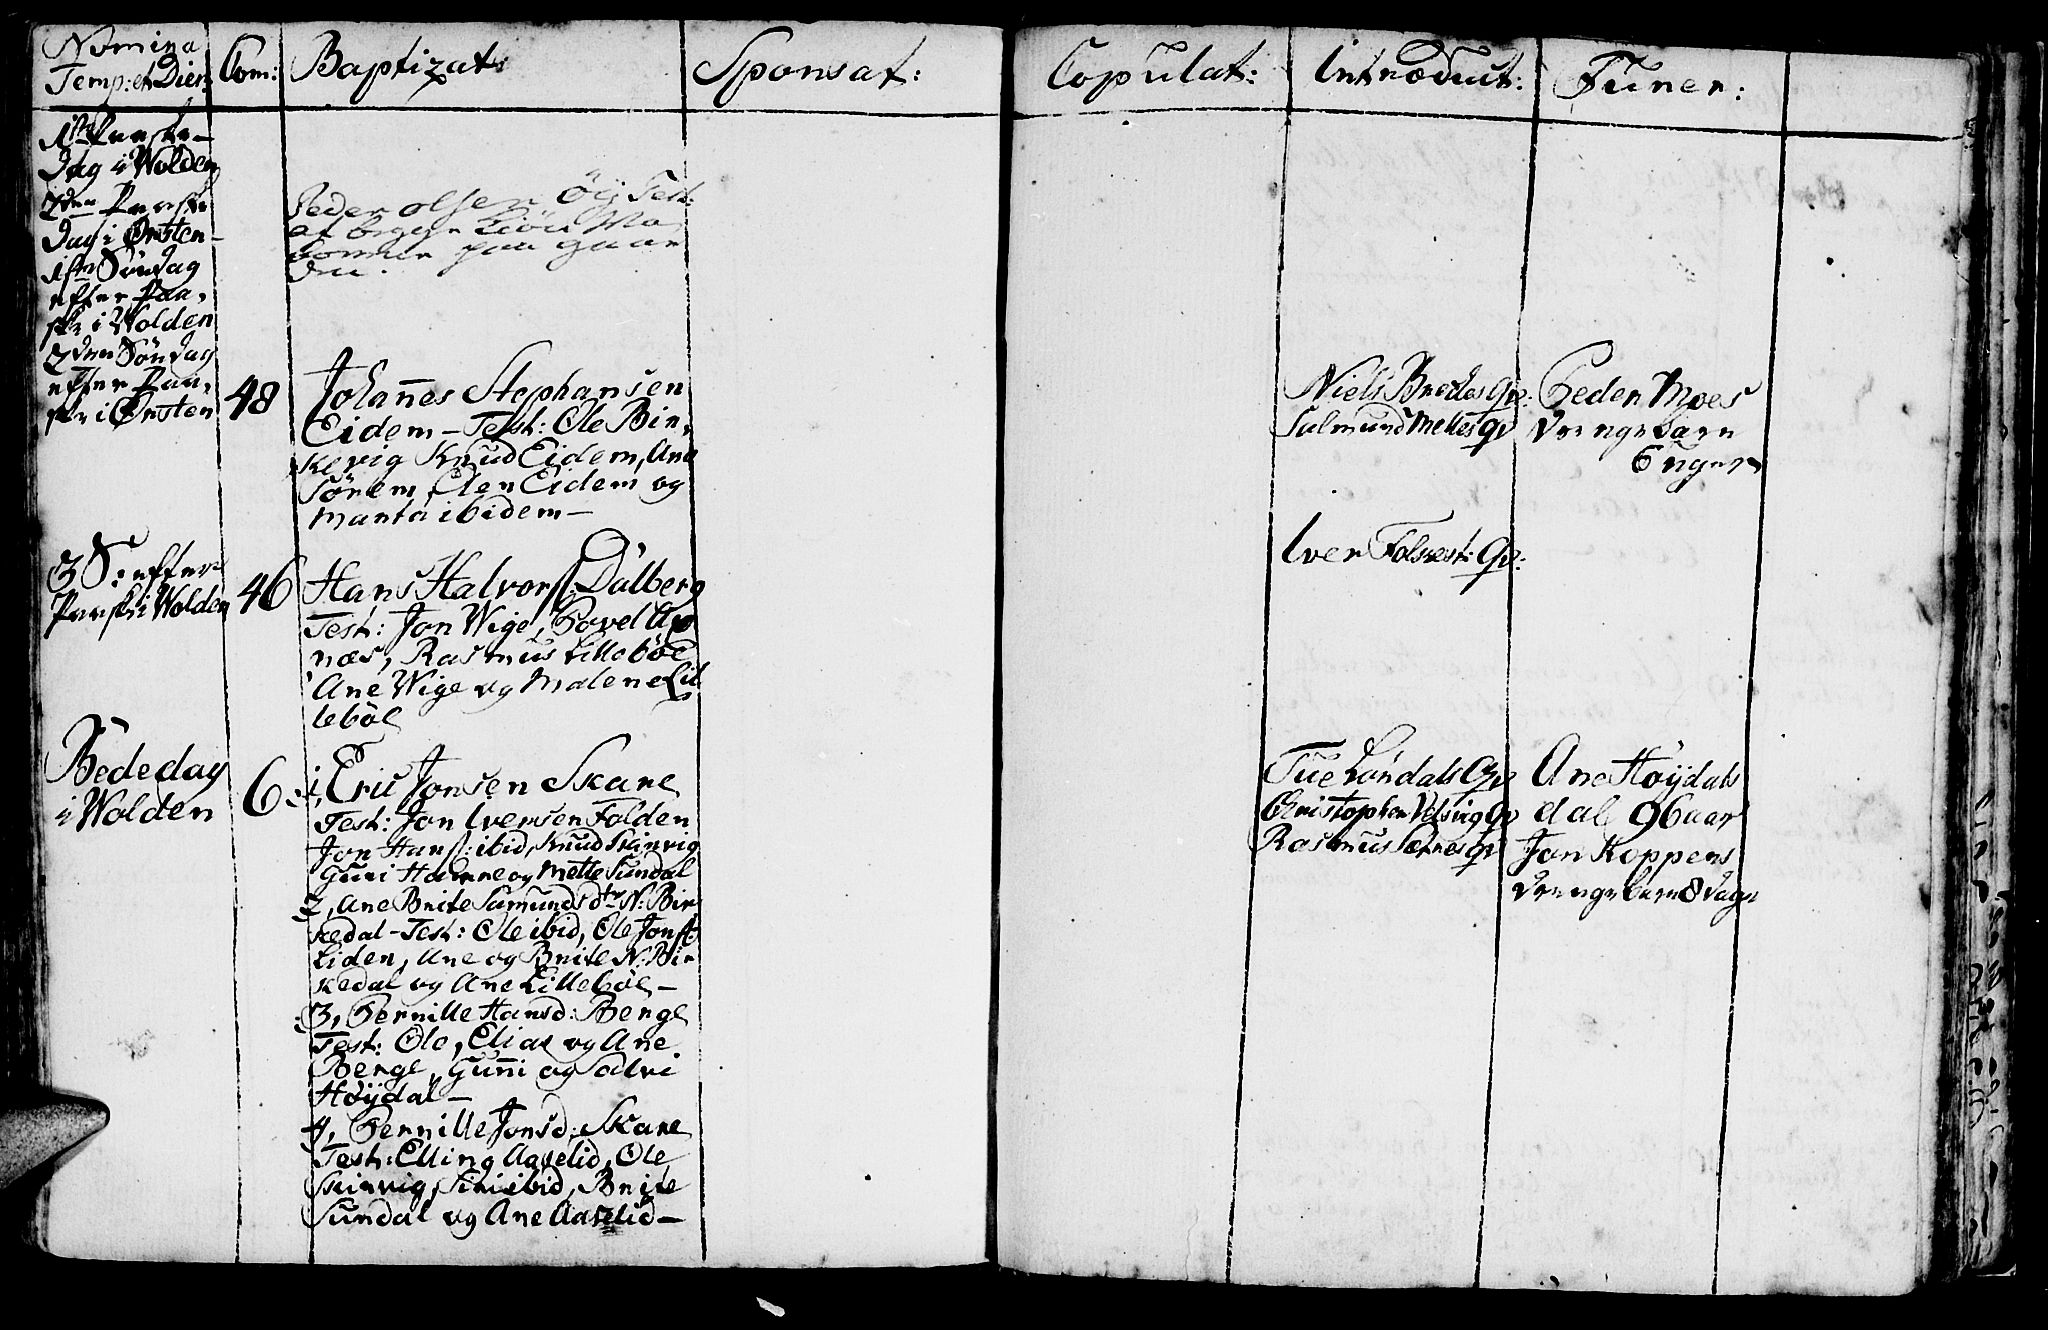 Nomina
Temp: et Dier:
Com:
Baptizat:
Sponsat:
Copulat:
Introduct:
Funer:
1ste Paaske-
dag i Wolden
2den Paaske
dag i Ørsten-
1ste Søndag
efter Paa,
ske i Wolden
2den Søndag
efter Paa,
ske i Ørsten
48
Peder olsen Test:
af begge
paa gaar
den.
Johannes Stephansen
Eidem - Test: Ole Bir,
kevig Knud Eidem, Ane
Sørem, Elen Eidem og
Marta ibidem -
Niels Bredes Qv:
Salmund Melles Qv
Peder Moes
drengebarn
6 uger
3 S: efter
Paaske i Wolden
46
Hans Halvors: Dalberg
Test: Jon Wige, Povel Aas
næs, Rasmus Lillebøe
Ane Wige og Malene Lil
lebøe
Iver Folkest: Qv:
Bededag
i Wolden
6
1, Eric Jonsen Skare
Test: Jon Iversen Folden
Jon Hans: ibid, Knud Skinvig
Guri Hamre og Mette Sundal
2, Ane Brite Samundsdtr N: Bir
kedal - Test: Ole ibid, Ole Jons:
Liden, Ane og Brite N: Bir
kedal og Ane Lillebøe -
3, Pernille Hansd: Berge
Test: Ole, Elias og Ane
Berge, Guri og Salvi
Høydal -
4, Pernille Jonsd: Skare
Test: Elling Aaselid, Ole
Skinvig, Siri ibid, Brite
Sundal og Ane Aaselid -
Tue Løndals Qv
Christopher Velsvig Qv
Rasmus Qv
Ane Høydals
dal 96 aar
Jon Koppens
drengebarn 8 dage